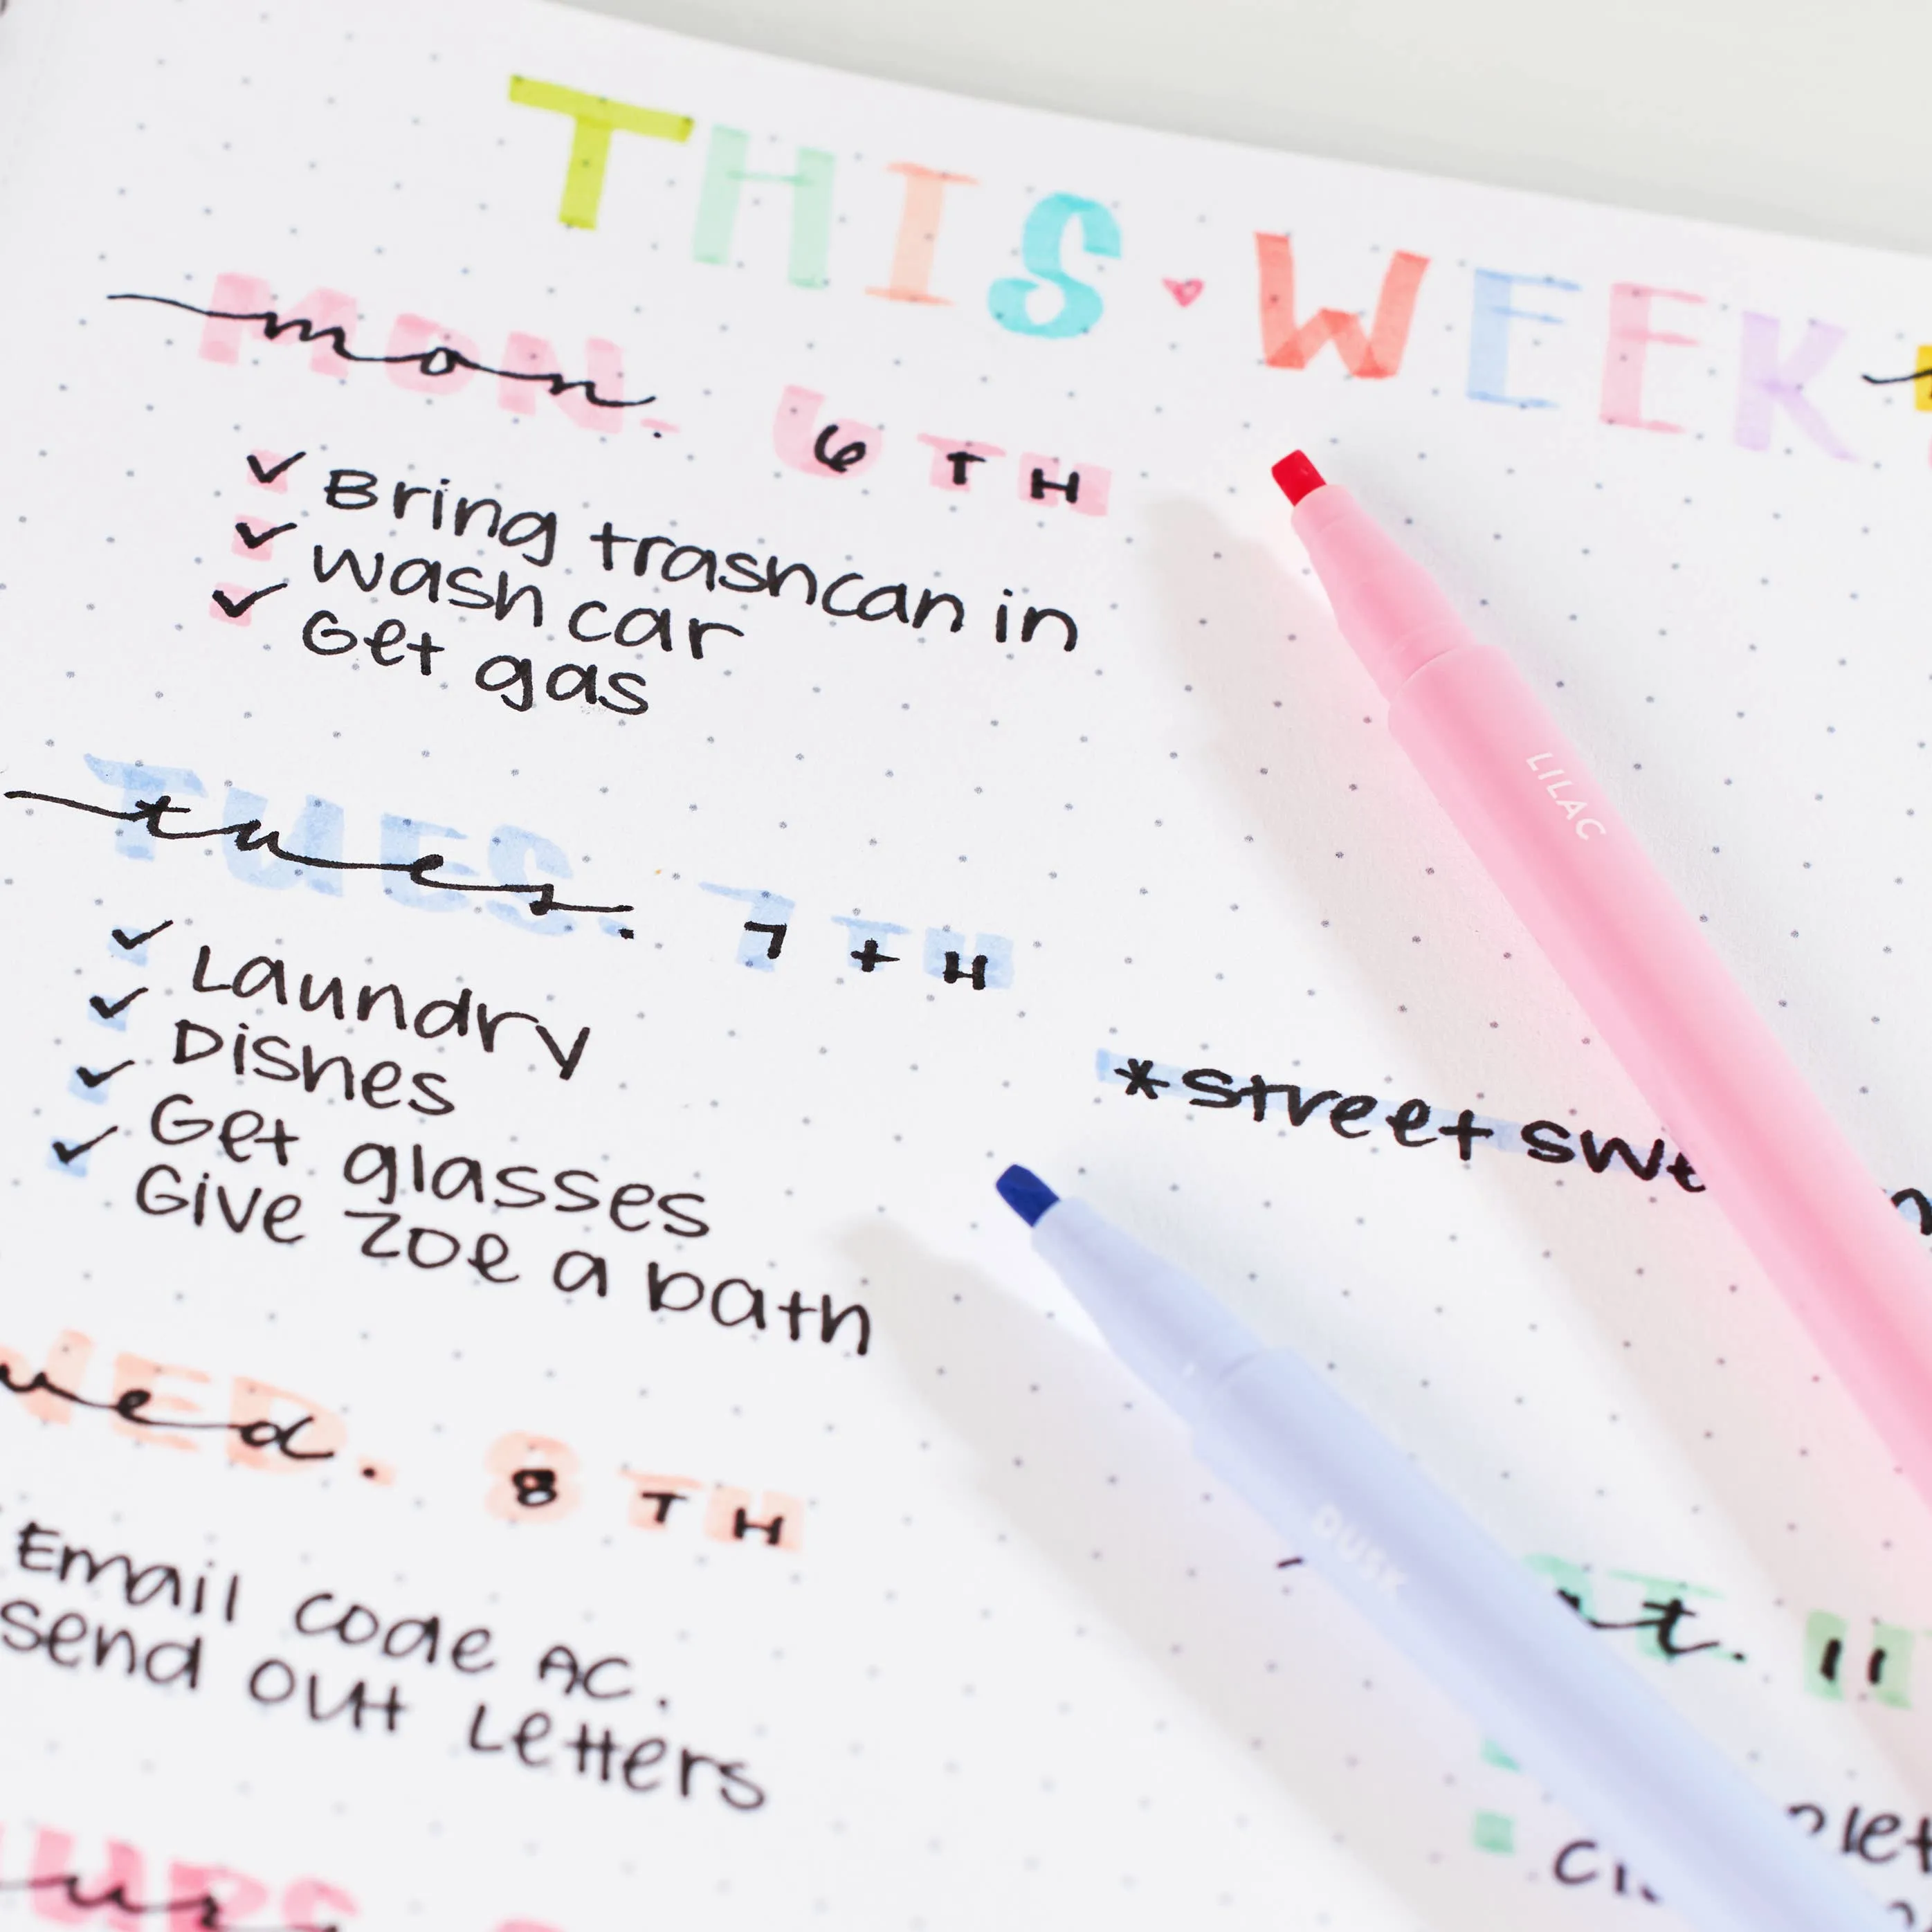 THIS WEEK
mon. 6TH
Bring trashcan in
wash car
Get gas
tues. 7tH
Laundry
Dishes
Get glasses
Give Zoe a bath
*street
wed. 8TH
Email code AC.
send out Letters
11
LILAC
DUSK